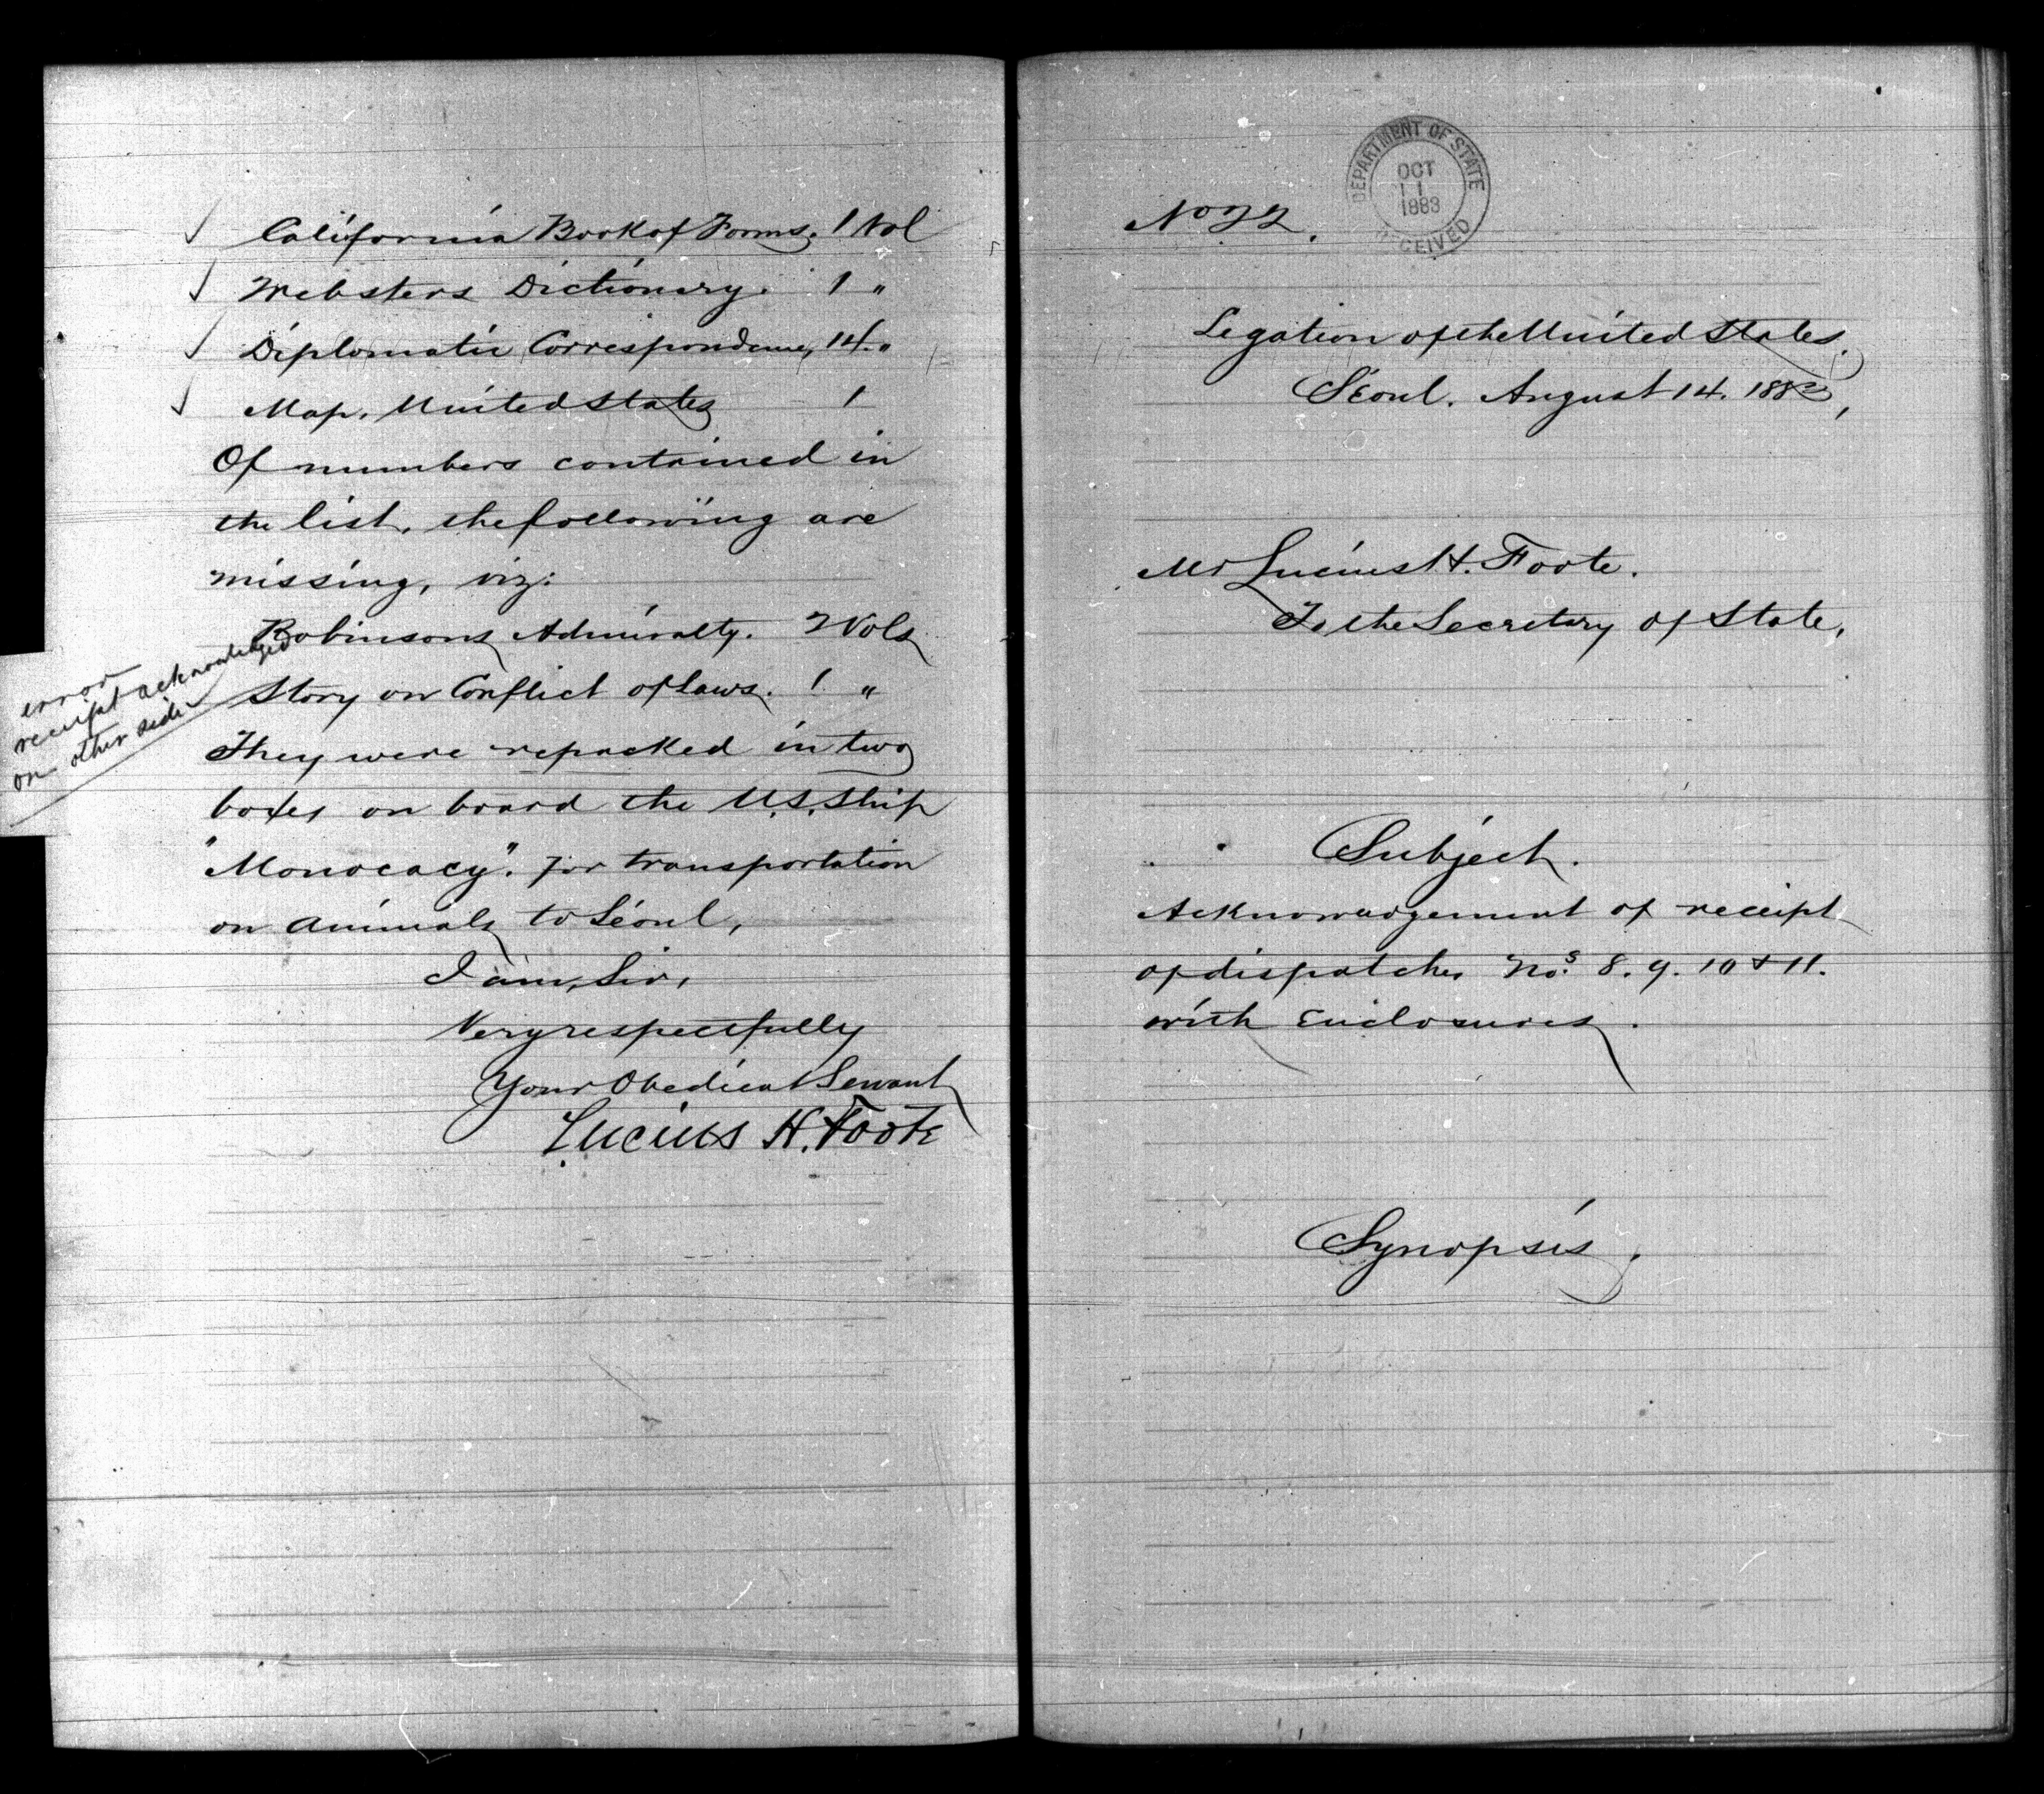 ✓ California Book of Forms. 1 Vol
✓ Websters Dictionary. 1 "
✓ Diplomatic Correspondence, 14 "
✓ Map. United States 1
Of numbers contained in
the list, the following are
missing, viz:
Robinsons Admiralty. Vols
Story on Conflict of Laws. 1 "
error
receipt acknowledged
on other side
They were repacked in two
boxes on board the U.S. Ship
"Monocacy". for transportation
on animals to Séoul,
I am, Sir,
Very respectfully
Your Obedient Servant
Lucius H. Foote
DEPARTMENT OF STATE
OCT
11
1883
RECEIVED
No 22.
Legation of the United States.
Séoul. August 14. 1883,
Mr Lucius H. Foote.
To the Secretary of State,
Subject.
Acknowledgement of receipt
of dispatches Nos. 8. 9. 10 & 11.
with Enclosures.
Synopsis.